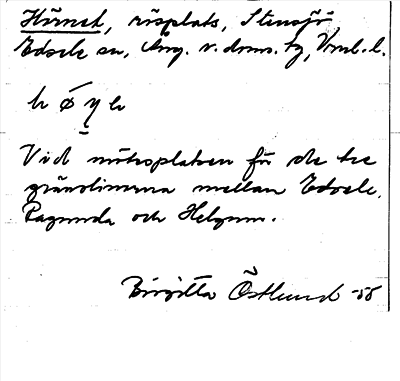 Hörnet, rösplats, Stensjö
Edsele sn, Ång. v. doms. tg, Vnrl. l.
Vid mötesplatsen för de tre
gränslinerna mellan Edsele,
Ragunda och Helgum.
Birgitta Östlund -55